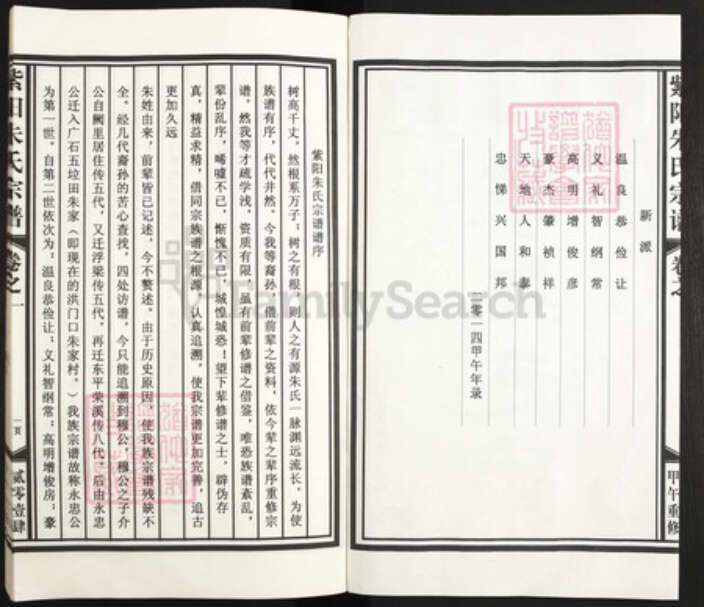 紫阳朱氏宗谱
卷之一
甲午重修
新派
温良恭俭让
义礼智纲常
高明增俊彦
豪杰肇祯祥
天地人和泰
忠悌兴国邦
二零一四甲午年录
紫阳朱氏宗谱谱序
树高千丈，然根系万子；树之有根，则人之有源朱氏一脉渊远流长。为使
族谱有序，代代井然。今我等裔孙，借前辈之资料，依今辈之辈序重修宗
谱。然我等才疏学浅，资质有限，虽有前辈修谱之借鉴，唯恐族谱紊乱，
辈份乱序，唏嘘不已，惭愧不已，诚惶诚恐！望下辈修谱之士，辟伪存
真，精益求精，借同宗族谱之根源，认真追溯，使我宗谱更加完善，追古
更加久远
朱姓由来，前辈皆已记述，今不赘述。由于历史原因，使我族宗谱残缺不
全。经几代裔孙的苦心查找，四处访谱，今只能追溯到穆公，穆公之子介
公自阙里居住传五代，又迁浮梁传五代，再迁东平荣溪传八代，后由永忠
公迁入广石五垃田朱家（即现在的洪门口朱家村。）我族宗谱故称永忠公
为第一世，自第二世依次为：温良恭俭让；义礼智纲常；高明增俊房；豪
紫阳朱氏宗谱
卷之一
一页
贰零壹肆
FamilySearch